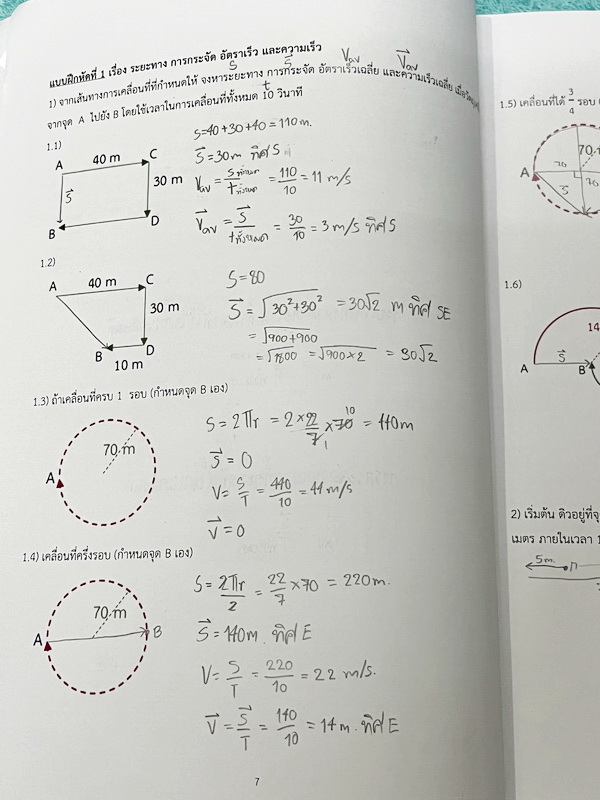 แบบฝึกหัดที่ 1 เรื่อง ระยะทาง การกระจัด อัตราเร็ว และความเร็ว
S S⃗ Vav V⃗av
1) จากเส้นทางการเคลื่อนที่ที่กำหนดให้ จงหาระยะทาง การกระจัด อัตราเร็วเฉลี่ย และความเร็วเฉลี่ย
t
จากจุด A ไปยัง B โดยใช้เวลาในการเคลื่อนที่ทั้งหมด 10 วินาที
1.1)
A 40 m C
30 m
S⃗
B D
S=40+30+40=110m.
S⃗=30m ทิศ S
Vav = Sทั้งหมด/tทั้งหมด = 110/10 = 11 m/s
V⃗av = S⃗/tทั้งหมด = 30/10 = 3 m/s ทิศ S
1.2)
A 40 m C
30 m
B D
10 m
S=80
S⃗ = √(30²+30²) = 30√2 m ทิศ SE
= √(900+900)
= √1800 = √(900×2) = 30√2
1.3) ถ้าเคลื่อนที่ครบ 1 รอบ (กำหนดจุด B เอง)
70 m
A
S=2πr = 2×22/7×70 = 440m
10
1
S⃗=0
V= S/T = 440/10 = 44 m/s
V⃗=0
1.4) เคลื่อนที่ครึ่งรอบ (กำหนดจุด B เอง)
70 m
A B
S= 2πr/2 = 22/7 ×70 = 220m.
S⃗=140m. ทิศ E
V= S/T = 220/10 = 22 m/s.
V⃗ = S⃗/T = 140/10 = 14 m. ทิศ E
7
1.5) เคลื่อนที่ได้ 3/4 รอบ
70
A 70
S⃗ 70
1.6)
14
A S⃗ B
2) เริ่มต้น ดิวอยู่ที่จุ
เมตร ภายในเวลา 1
5m.